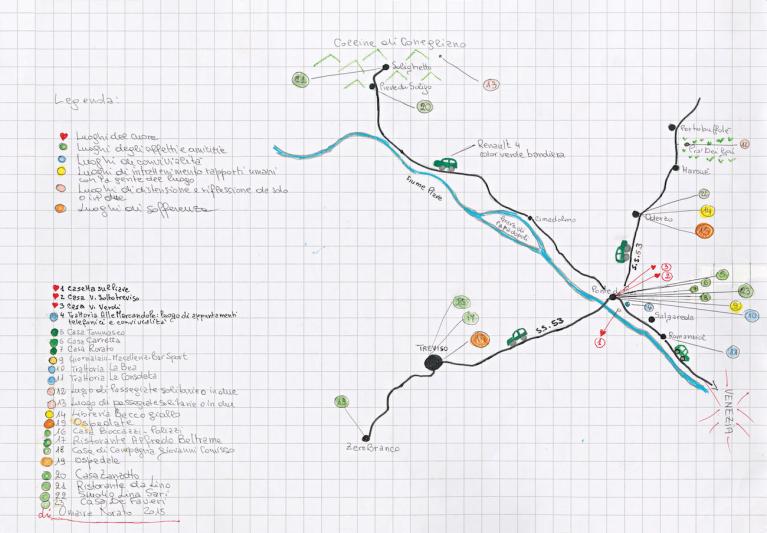 Colline di Conegliano
21
Solighetto
Pieve di Soligo
13
20
Legenda:
Luoghi del cuore
Luoghi degli affetti e amicizie
Luoghi di convivialità
Luoghi di intrattenimento rapporti umani
con la gente del luogo
Luoghi di distensione e riflessione da solo
o in due
Luoghi di sofferenza
Renault 4
color verde bandiera
Fiume Piave
Cimadolmo
Portobuffolè
Prà Dei Gai
12
Mansuè
Oderzo
22
14
15
S.S.53
3
2
Ponte di
5
6
7
8
23
9
10
4
Salgareda
Romanziol
11
1
VENEZIA
S.S. 53
TREVISO
16
17
19
18
ZeroBranco
1 Casetta sul Piave
2 Casa V. Sottotreviso
3 Casa V. Verdi
4 Trattoria Alle Marcandole: luogo di appuntamenti
telefonici e convivialità
5 Casa Tommaseo
6 Casa Carretta
7 Casa Rorato
9 Giornalaio-Macelleria-Bar Sport
10 Trattoria La Bea
11 Trattoria La Consolata
12 Luogo di Passegiate solitarie o in due
13 Luogo di passegiate solitarie o in due
14 Libreria Becco giallo
15 Ospedale
16 Casa Boccazzi-Polizzi
17 Ristorante Alfredo Beltrame
18 Casa di Campagna Giovanni Comisso
19 ospedale
20 Casa Zanzotto
21 Ristorante da Lino
22 Studio Lina Sari
23 Casa De Faveri
di Omaire Norato 2015